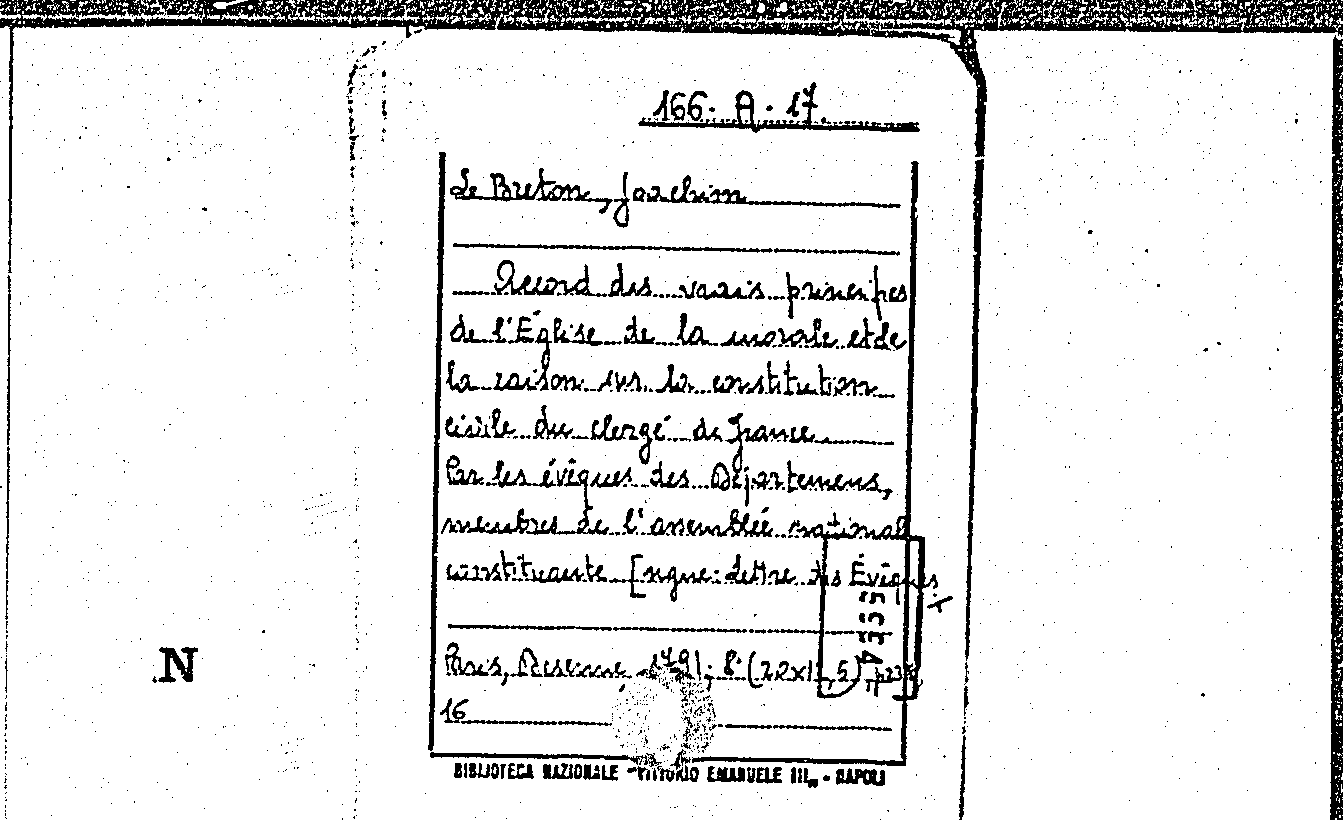 166. A. 17.
Le Breton, Joachim
Accord des vrais principes
de l'Église de la morale et de
la raison sur la constitution
civile du clergé de France
Par les évêques des Départemens,
membres de l'assemblée national
constituante [segue: Lettre des Évêques
Paris, Desenne, 1791; 8° (22x1 ,5)
16
74355
N
BIBLIOTECA NAZIONALE "VITTORIO EMANUELE III" - NAPOLI